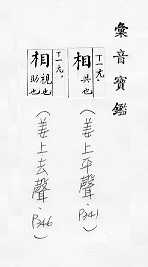 彙音寶鑑
丁一兄。
相 共也
(姜上平聲·P341)
丁一兄。
相 視也 助也
(姜上去聲·P346)